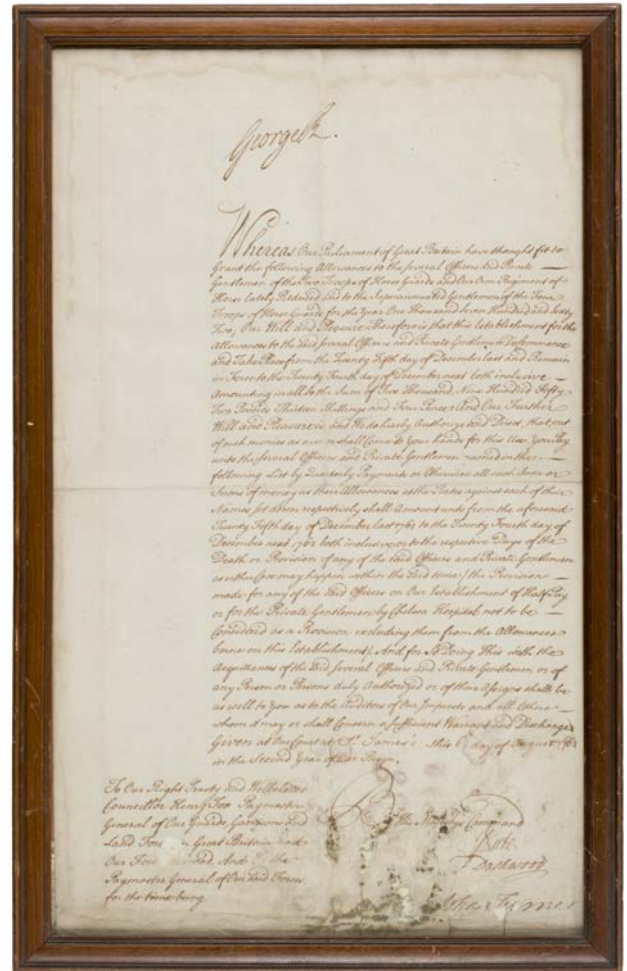 George R.
Whereas Our Parliament of Great Britain have thought fit to
Grant the following Allowances to the several Officers and Private
Gentlemen of the Two Troops of Horse Guards and Our Own Regiment of
Horse lately Reduced and to the Superannuated Gentlemen of the Four
Troops of Horse Guards for the Year One Thousand Seven Hundred and Sixty
Two; Our Will and Pleasure Therefore is that this Establishment for the
Allowances to the said several Officers and Private Gentlemen Do Commence
and Take Place from the Twenty Fifth day of December last and Remain
in Force to the Twenty Fourth day of December next both inclusive
Amounting in all to the Sum of Two Thousand, Nine Hundred Fifty
Two Pounds Thirteen Shillings and Four Pence; And Our Further
Will and Pleasure is, and We do hereby Authorize and Direct, that out
of such monies as are or shall Come to Your hands for this Use, You Pay
unto the several Officers and Private Gentlemen named in the
following List by Quarterly Payments or Otherwise all such Sum or
Sums of money as their Allowances at the Rates against each of their
Names set down respectively shall Amount unto from the aforesaid
Twenty Fifth day of December last 1761 to the Twenty Fourth day of
December next 1762 both inclusive, or to the respective Days of the
Death or Provision of any of the said Officers and Private Gentlemen
as either Case may happen within the said time, (the Provision
made for any of the said Officers on Our Establishment of Half Pay
or for the Private Gentlemen by Chelsea Hospital not to be
Considered as a Provision excluding them from the Allowances
borne on this Establishment), And for So Doing This with the
Acquittances of the said several Officers and Private Gentlemen or of
any Person or Persons duly Authorized or of their Assigns shall be
as well to You as to the Auditors of Our Imprests and all others
whom it may or shall Concern a Sufficient Warrant and Discharge
Given at Our Court at St. James's this day of August
in the Second Year of Our Reign.
To Our Right Trusty and Welbeloved
Councillor Henry Fox Paymaster
General of Our Guards Garrisons and
Land Forces in Great Britain and
Our And the
Paymaster General of Our said Forces
for the time being
By His Majestys Command
Bute
F Dashwood
John Turner